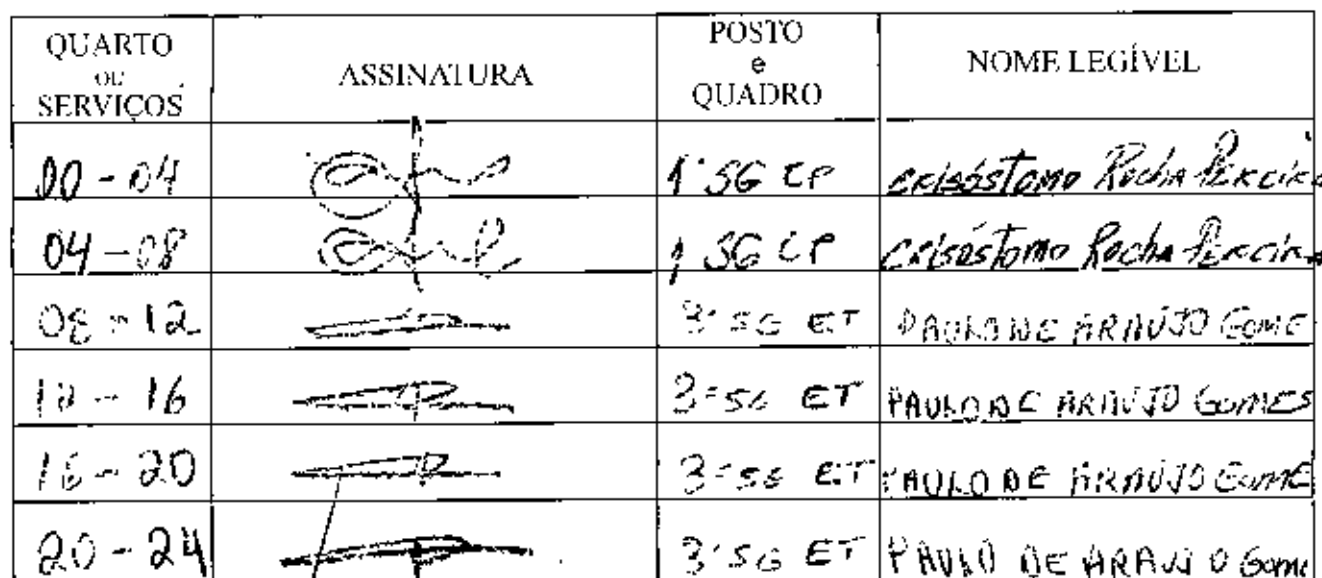 QUARTO
OU
SERVIÇOS
ASSINATURA
POSTO
e
QUADRO
NOME LEGÍVEL
00 - 04 1º SG CP CRISÓSTOMO Rocha PEREIRA
04 - 08 1 SG CP CRISÓSTOMO Rocha PEREIRA
08 - 12 3º SG ET PAULO DE ARAÚJO GOME
12 - 16 3º SG ET PAULO DE ARAÚJO GOMES
16 - 20 3º SG ET PAULO DE ARAÚJO GOME
20 - 24 3º SG ET PAULO DE ARAUJO Gome